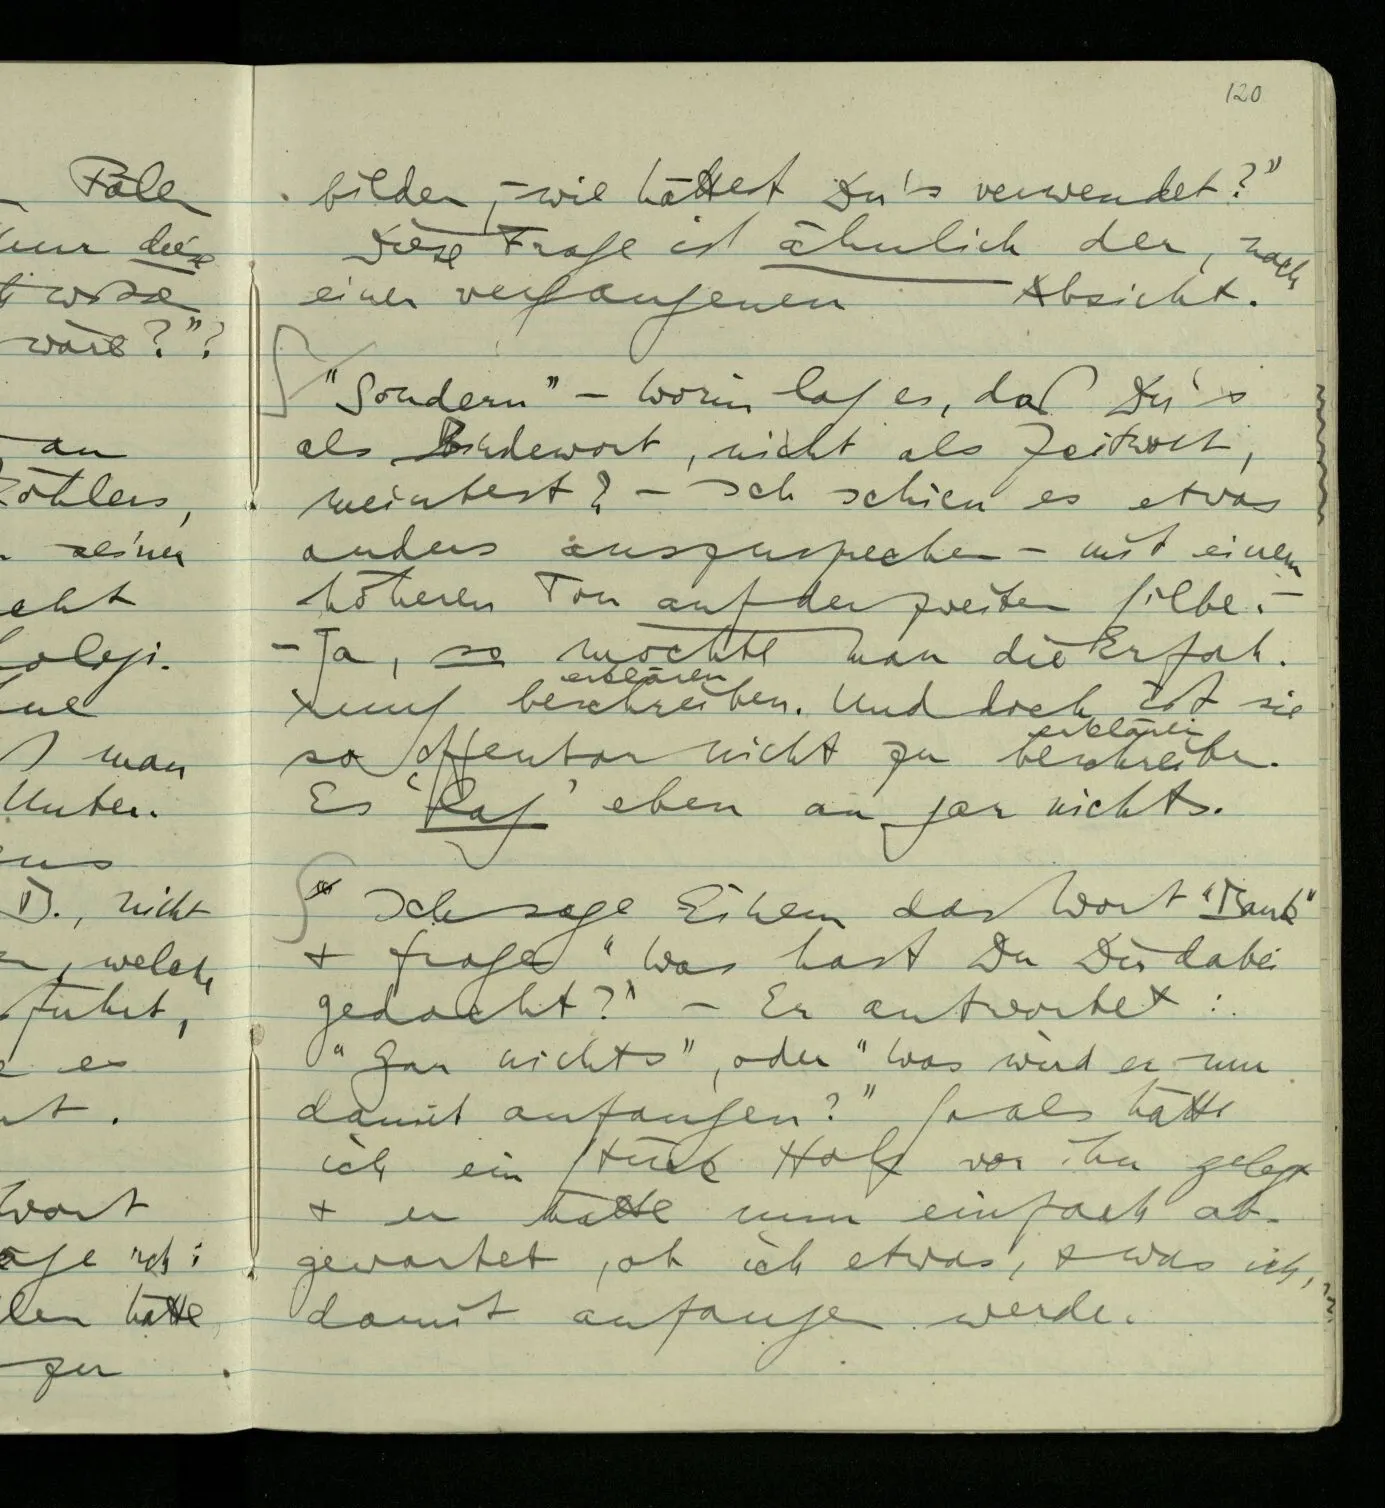 120
Fälle
nur diese
wäre?"?
an
Köhlers,
seiner
man
Unter-
B., nicht
, welche
führt,
es
Wort
hätte
zu
bilden, – wie hättest Du's verwendet?"
Diese Frage ist ähnlich der, nach
einer vergangenen Absicht.
"Sondern" – worin lag es, daß Du's
als Bindewort, nicht als Zeitwort,
meintest? – Ich schien es etwas
anders auszusprechen – mit einem
höheren Ton auf der zweiten Silbe. –
– Ja, so möchte man die Erfah-
rung beschreiben. Und doch ist sie
erklären
so offenbar nicht zu beschreiben.
erklären
Es 'lag' eben an gar nichts.
Ich sage Einem das Wort "Bank"
+ frage "Was hast Du Dir dabei
gedacht?" – Er antwortet:
"Gar nichts", oder "Was wird er nun
damit anfangen?" So als hätte
ich ein Stück Holz vor ihn gelegt
+ er hätte nun einfach ab-
gewartet, ob ich etwas, + was ich,
damit anfangen werde.